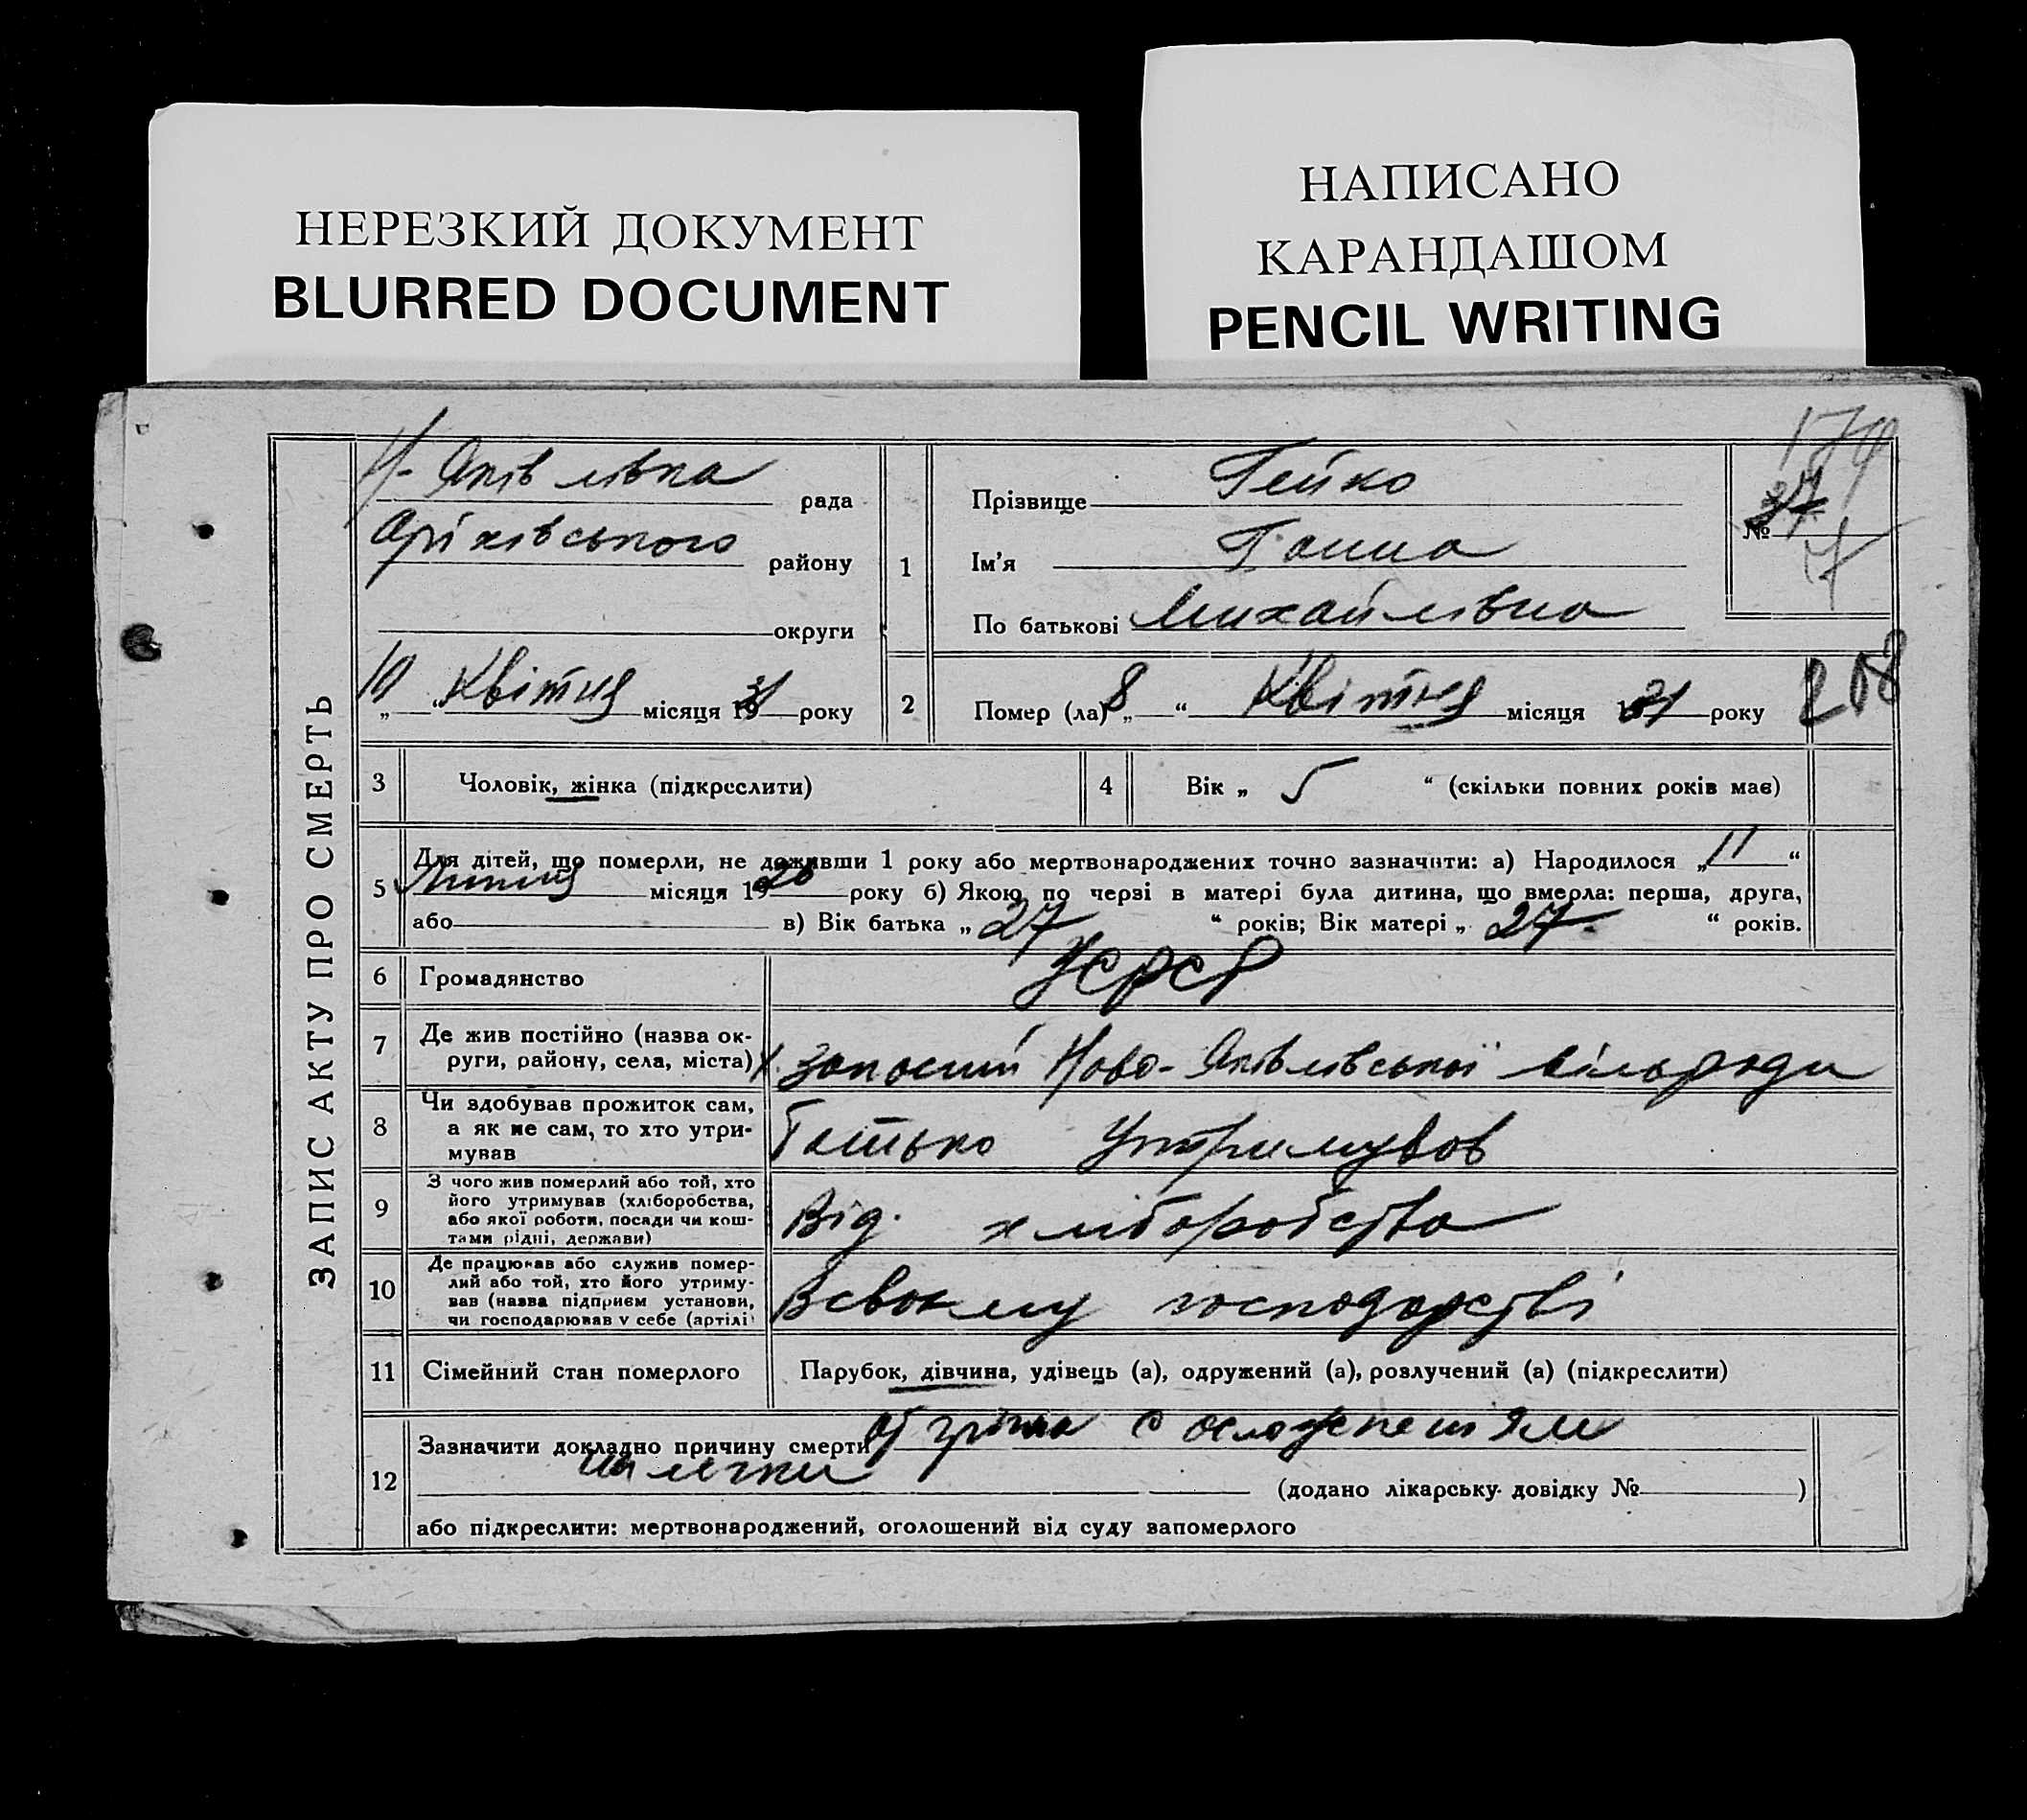 НЕРЕЗКИЙ ДОКУМЕНТ
BLURRED DOCUMENT
НАПИСАНО
КАРАНДАШОМ
PENCIL WRITING
ЗАПИС АКТУ ПРО СМЕРТЬ
Н-Яківлівка рада
Оріхівського району
округи
„10“ Квітня місяця 1931 року
1
Прізвище Гейко
Ім'я Ганна
По батькові Михайлівна
№
2 Помер (ла) „8“ Квітня місяця 31 року
208
3 Чоловік, жінка (підкреслити)
4 Вік „ 5 “ (скільки повних років має)
5 Для дітей, що померли, не доживши 1 року або мертвонароджених точно зазначити: а) Народилося „11“
Липня місяця 1926 року б) Якою по черзі в матері була дитина, що вмерла: перша, друга,
або в) Вік батька „27“ років; Вік матері „27“ років.
6 Громадянство УСРСР
7 Де жив постійно (назва ок-
руги, району, села, міста) Х. Ново-Яківлівської сільради
8 Чи здобував прожиток сам,
а як не сам, то хто утри-
мував
Батько Утримував
9 З чого жив померлий або той, хто
його утримував (хліборобства,
або якої роботи, посади чи кош-
тами рідні, держави)
Від хліборобства
10 Де працював або служив помер-
лий або той, хто його утриму-
вав (назва підприєм установи,
чи господарював у себе (артілі)
Всвойму господарстві
11 Сімейний стан померлого Парубок, дівчина, удівець (а), одружений (а), розлучений (а) (підкреслити)
12 Зазначити докладно причину смерти От гріпа с осложненіям
на легки
(додано лікарську довідку № )
або підкреслити: мертвонароджений, оголошений від суду запомерлого